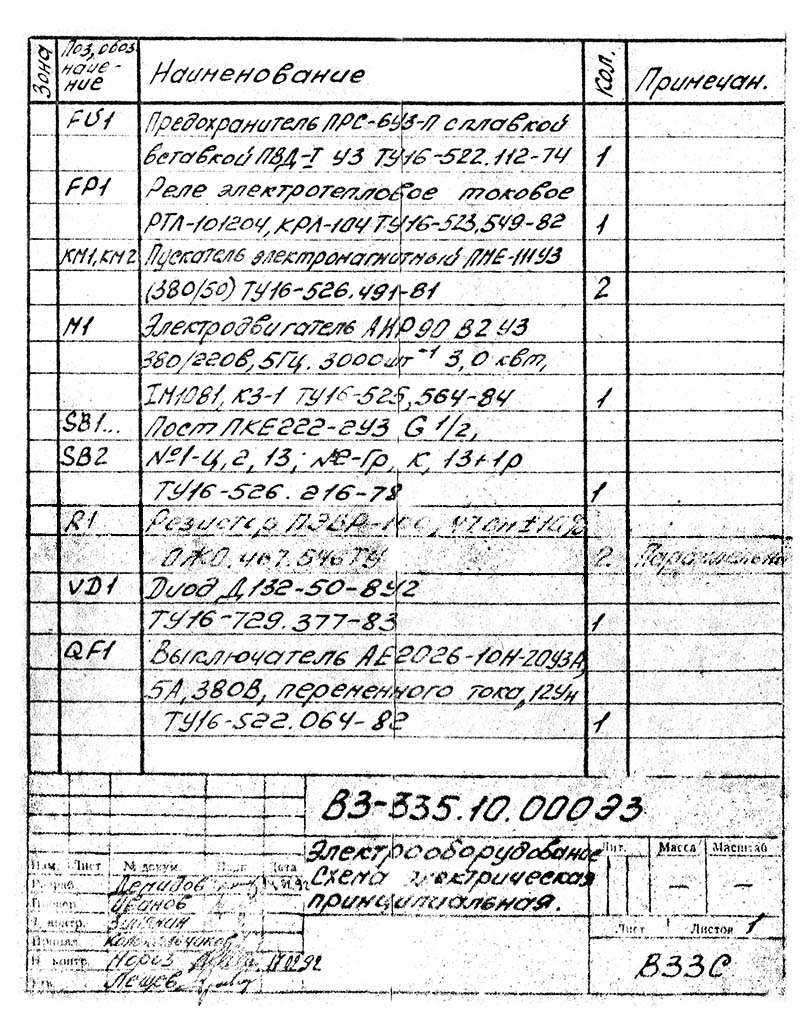 Зона Поз, обоз наче- ние Наименование Кол. Примечан.
FU1 Предохранитель ПРС-6У3-П с плавкой
вставкой ПВД-I У3 ТУ16-522.112-74 1
FP1 Реле электротепловое токовое
РТЛ-101204, КРЛ-104 ТУ16-523,549-82 1
КМ1, КМ2 Пускатель электромагнитный ПМЕ-111У3
(380/50) ТУ16-526.491-81 2
М1 Электродвигатель АИР 90 В2 У3
380/220В, 5Гц. 3000 шт⁻¹ 3,0 квт,
IM1081, К3-1 ТУ16-525,564-84 1
SB1... Пост ПКЕ222-2У3 G 1/2,
SB2 №1-Ц, 2, 13; №2-Гр, К, 13+1р
ТУ16-526.216-78 1
R1 Резистор ПЭВР-100, 47 ом ±10%
ОЖО.467.546ТУ 2. Параллельно
VD1 Диод Д132-50-8У2
ТУ16-729.377-83 1
QF1 Выключатель АЕ2026-10Н-20У3А,
5А, 380В, переменного тока, 12Ун
ТУ16-522.064-82 1
ВЗ-335.10.000Э3
Электрооборудование
Схема электрическая
принципиальная.
Лит. Масса Масштаб
— —
Изм. Лист № докум. Подп. Дата
Разраб. Демидов
Иванов
Т. контр.
Н. контр. Мороз
Утв. Лещев
Лист Листов 1
ВЗЗС